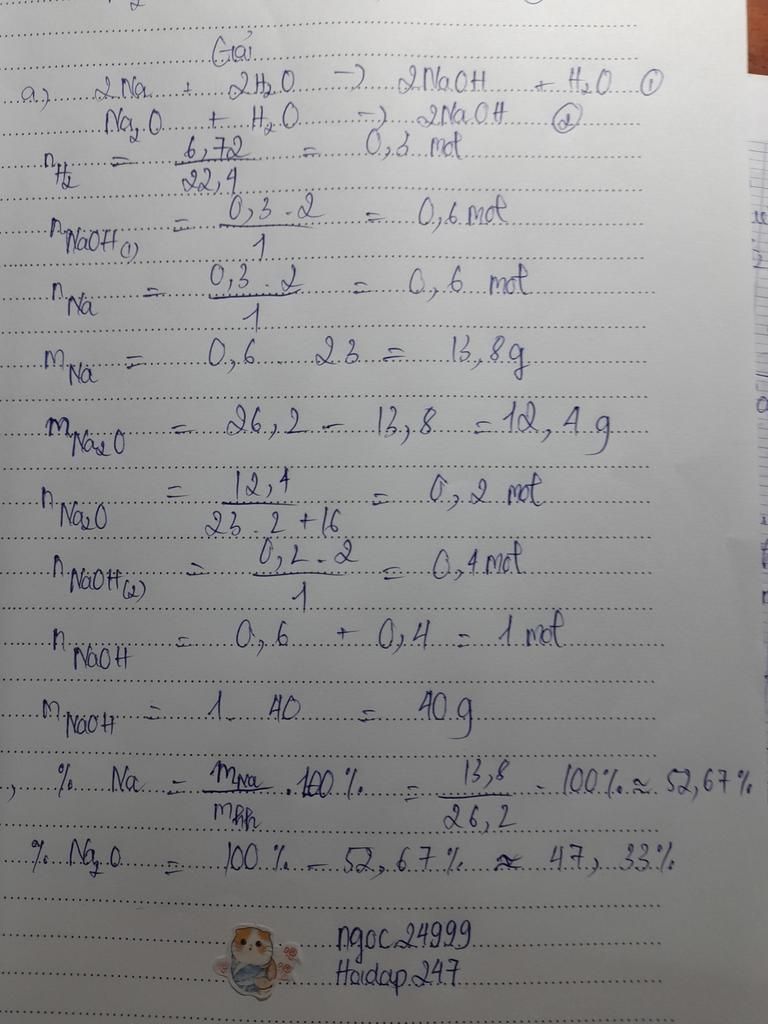 Giải
a) 2Na + 2H₂O → 2NaOH + H₂O ①
Na₂O + H₂O → 2NaOH ②
n H₂ = 6,72 / 22,4 = 0,3 mol
n NaOH(1) = 0,3 . 2 / 1 = 0,6 mol
n Na = 0,3 . 2 / 1 = 0,6 mol
m Na = 0,6 23 = 13,8g
m Na₂O = 26,2 - 13,8 = 12,4 g
n Na₂O = 12,4 / 23 . 2 + 16 = 0,2 mol
n NaOH(2) = 0,2 . 2 / 1 = 0,4 mol
n NaOH = 0,6 + 0,4 = 1 mol
m NaOH = 1 . 40 = 40 g
, % Na = mNa / mhh . 100 % = 13,8 / 26,2 . 100% ≈ 52,67 %
% Na₂O = 100 % - 52,67 % ≈ 47,33%
ngoc24999
Hoidap247